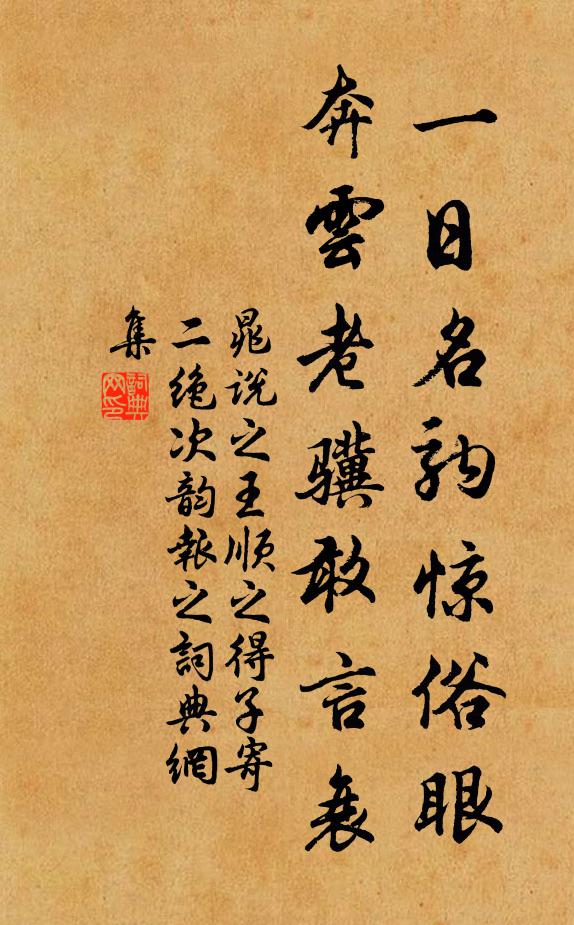 一日名驹惊俗眼
奔雲老骥敢言衰
晁说之王顺之得子寄
二绝次韵報之詞典網
集
詞典
网印